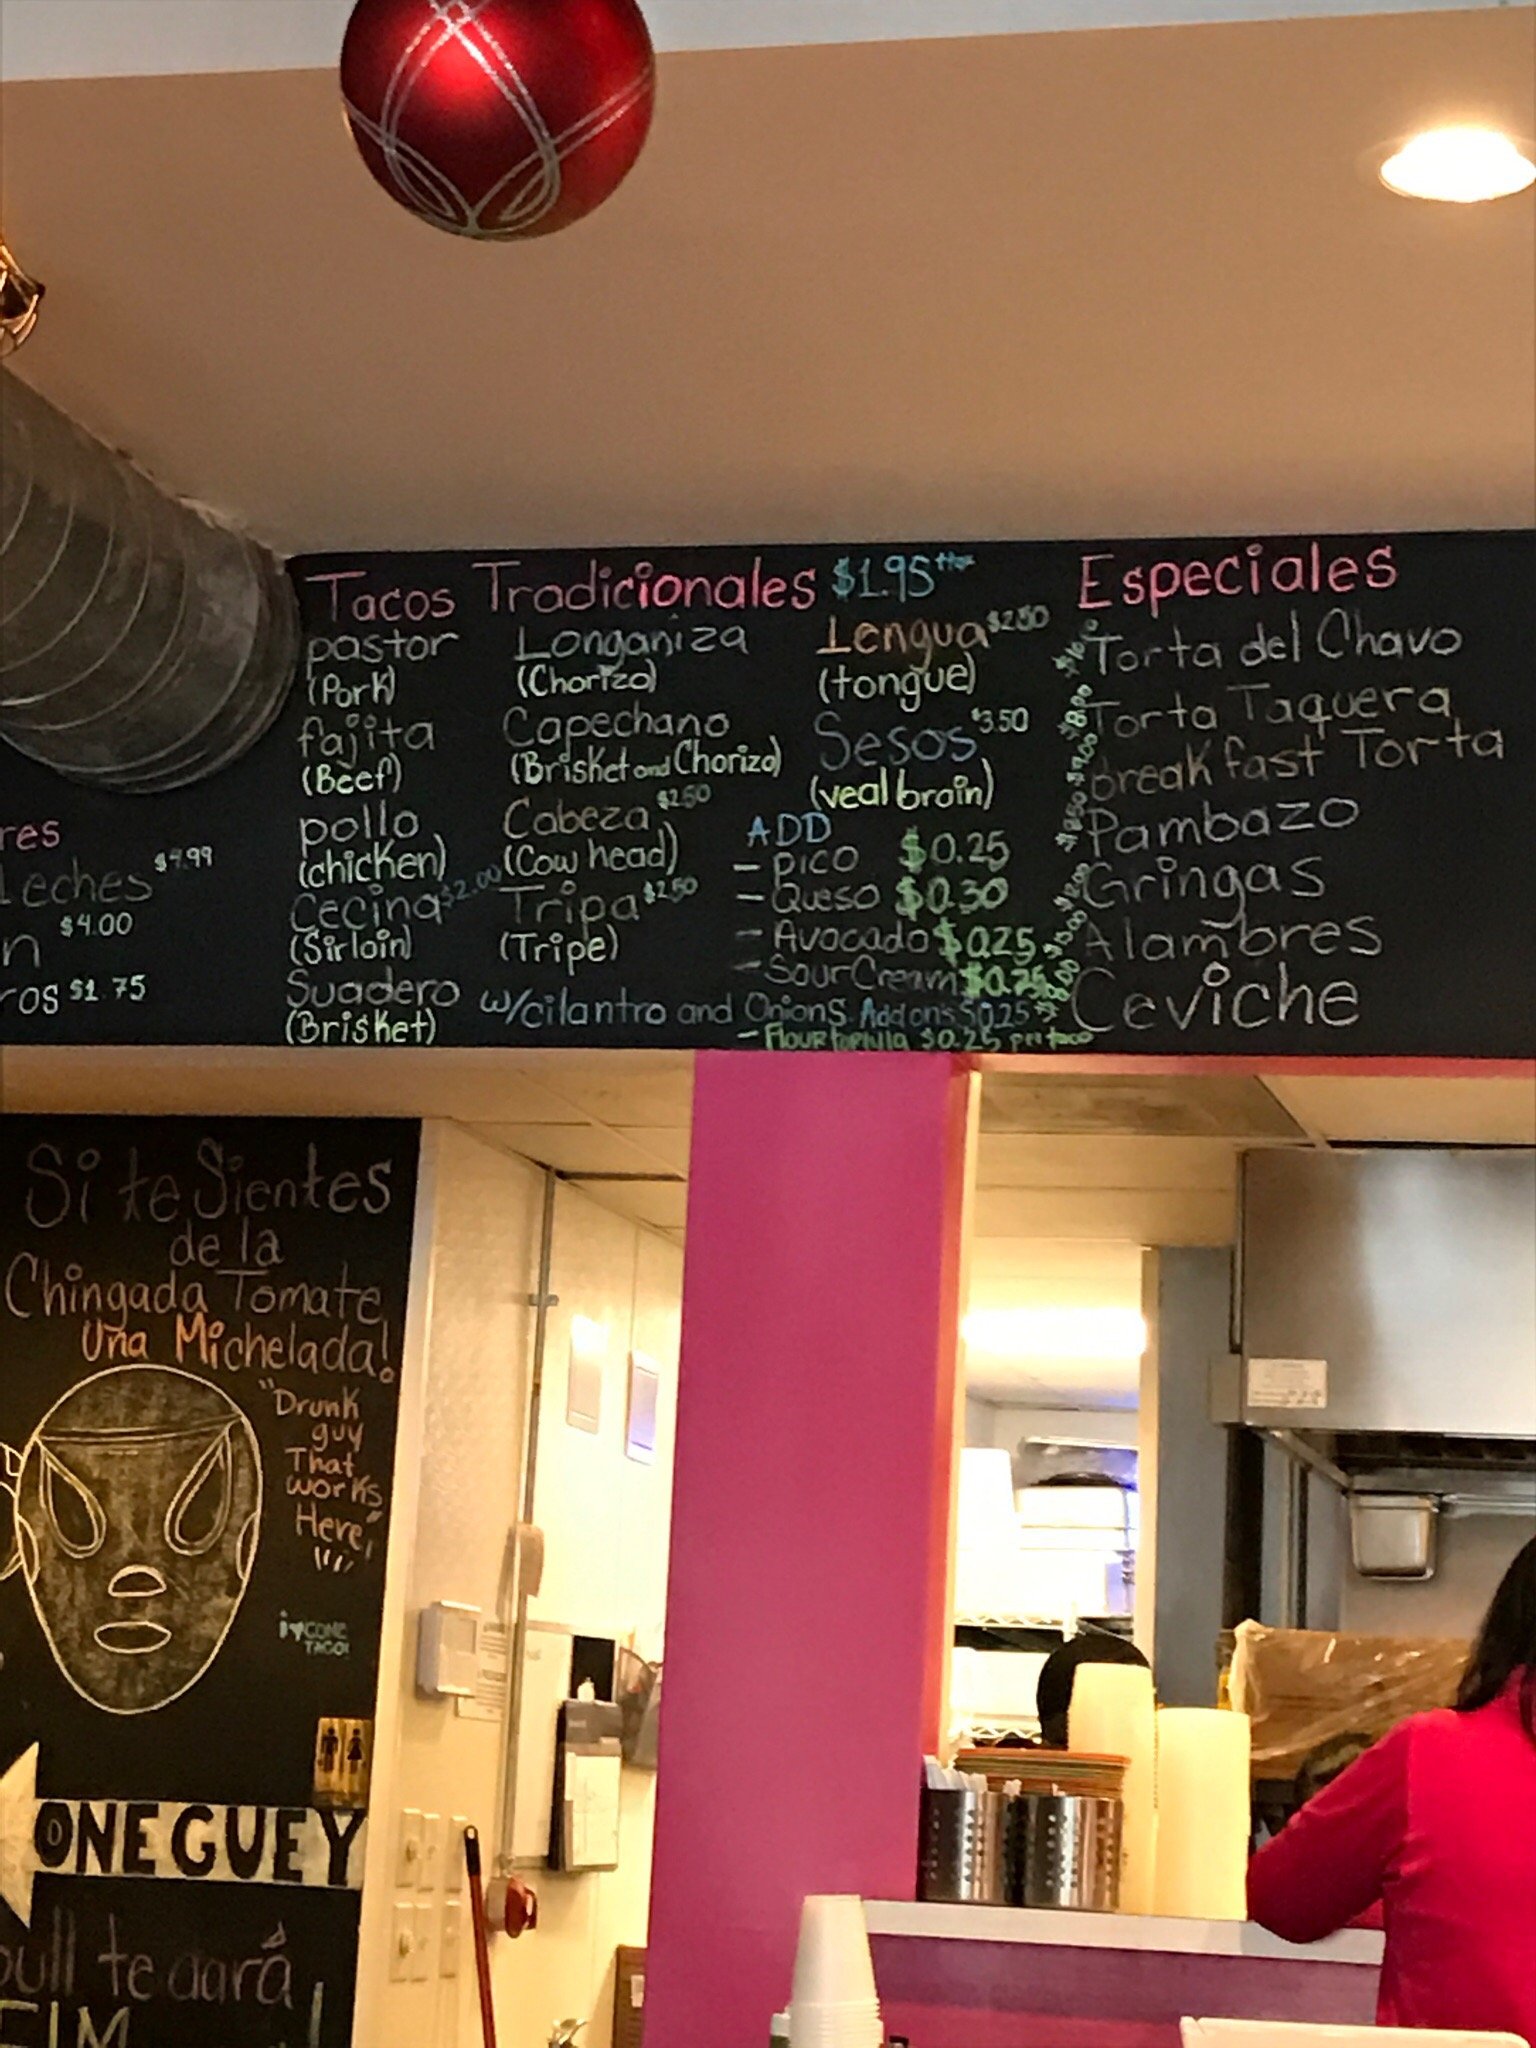 Tacos Tradicionales $1.95
pastor
(Pork)
fajita
(Beef)
pollo
(chicken)
Cecina $2.00
(Sirloin)
Suadero
(Brisket)
Longaniza
(Chorizo)
Capechano
(Brisket and Chorizo)
Cabeza $2.50
(Cow head)
Tripa $2.50
(Tripe)
w/cilantro and Onions. Add ons $0.25
Lengua $2.50
(tongue)
Sesos $3.50
(veal brain)
ADD
- pico $0.25
- Queso $0.30
- Avocado $0.25
- Sour Cream $0.25
- Flour $0.25 per taco
Especiales
Torta del Chavo
$8.00 Torta Taquera
$9.00 breakfast Torta
$8.50 Pambazo
$12.00 Gringas
Alambres
Ceviche
res
Leches $4.99
n $4.00
ros $1.75
Si te Sientes
de la
Chingada Tomate
Una Michelada!
"Drunk
guy
That
works
Here"
i ♥ CONE
TACO!
ONE GUEY
ull te dará